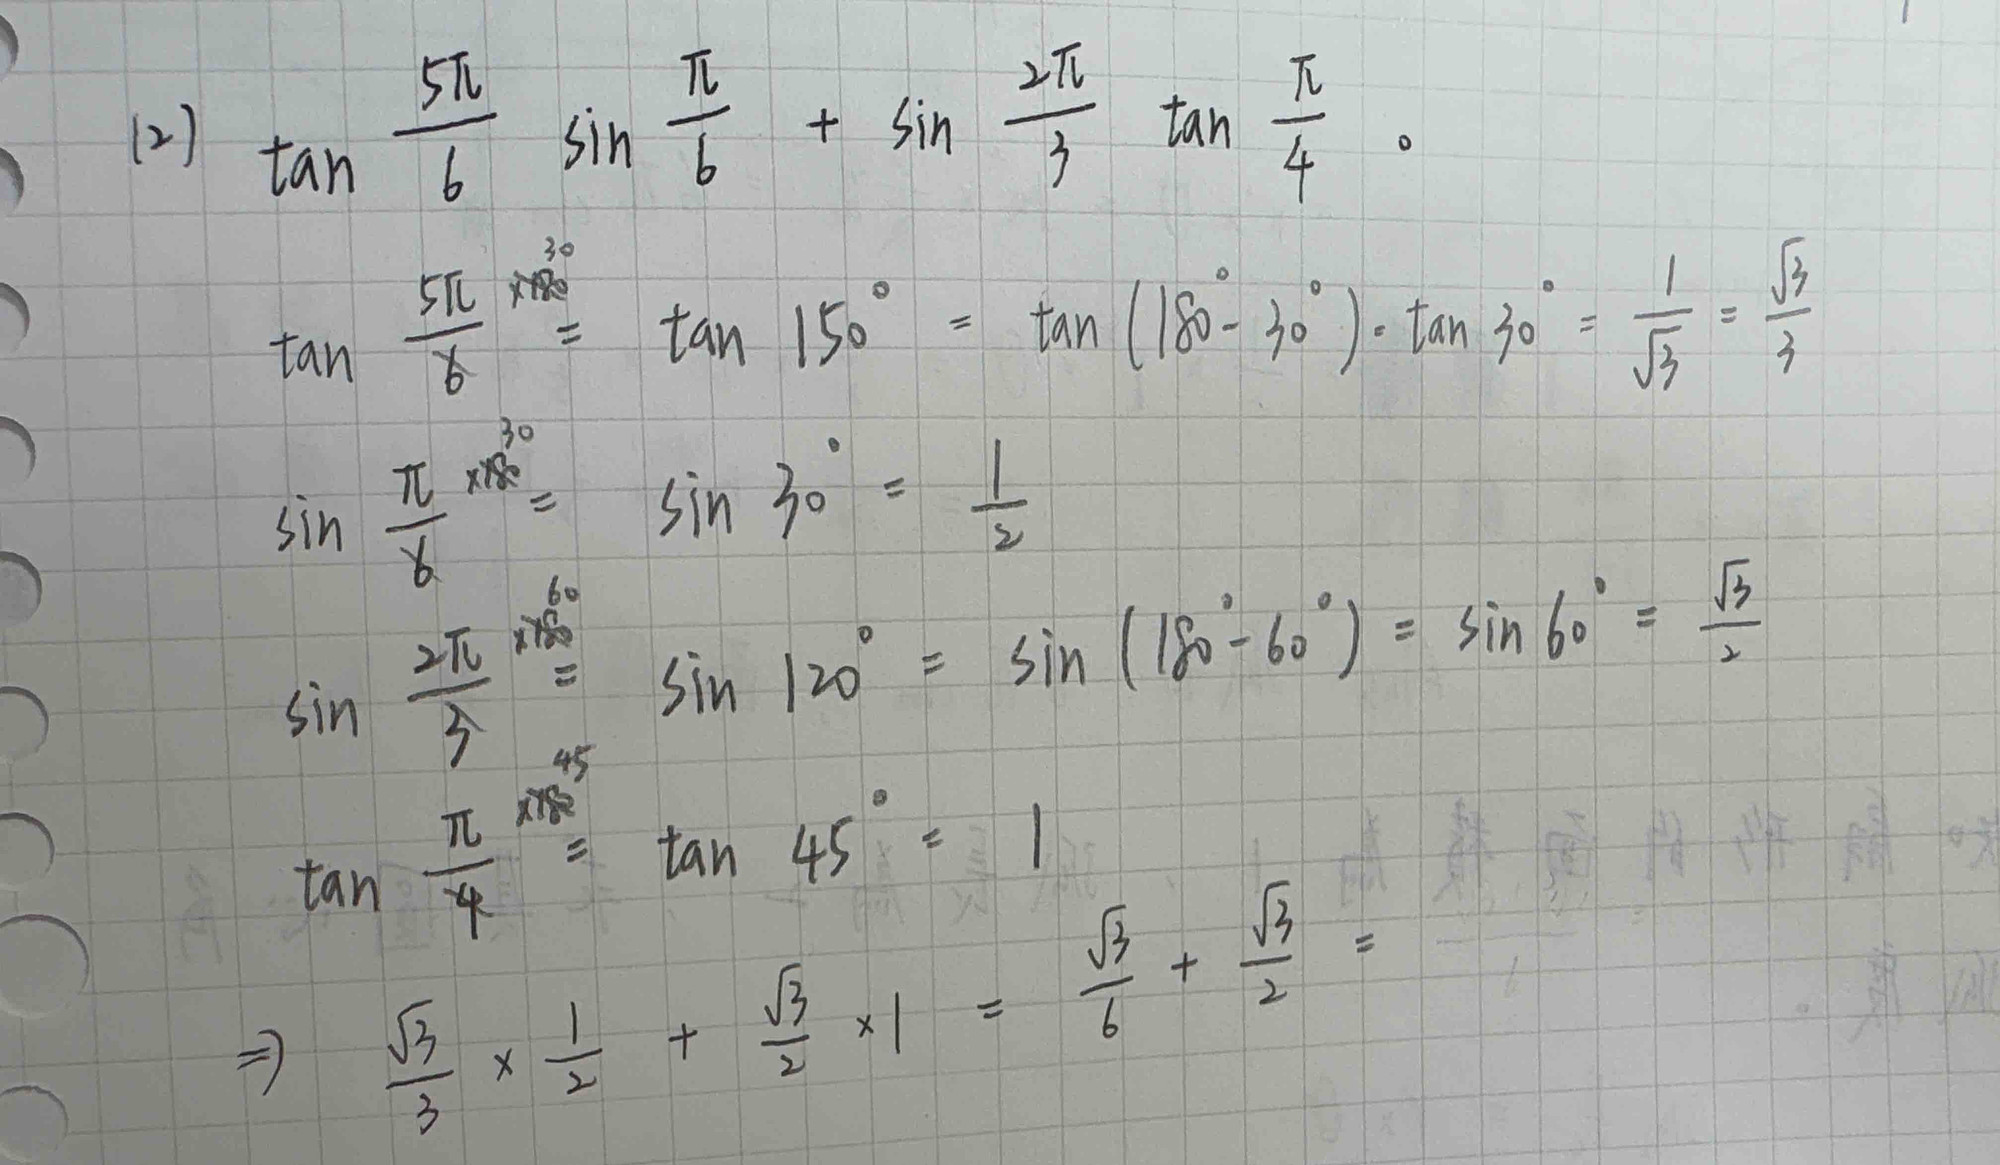 (2) tan 5π/6 sin π/6 + sin 2π/3 tan π/4 。
tan 5π/6 ×180 30 = tan 150° = tan (180° - 30°) = tan 30° = 1/√3 = √3/3
sin π/6 ×180 30 = sin 30° = 1/2
sin 2π/3 ×180 60 = sin 120° = sin (180° - 60°) = sin 60° = √3/2
tan π/4 ×180 45 = tan 45° = 1
⇒ √3/3 × 1/2 + √3/2 × 1 = √3/6 + √3/2 =